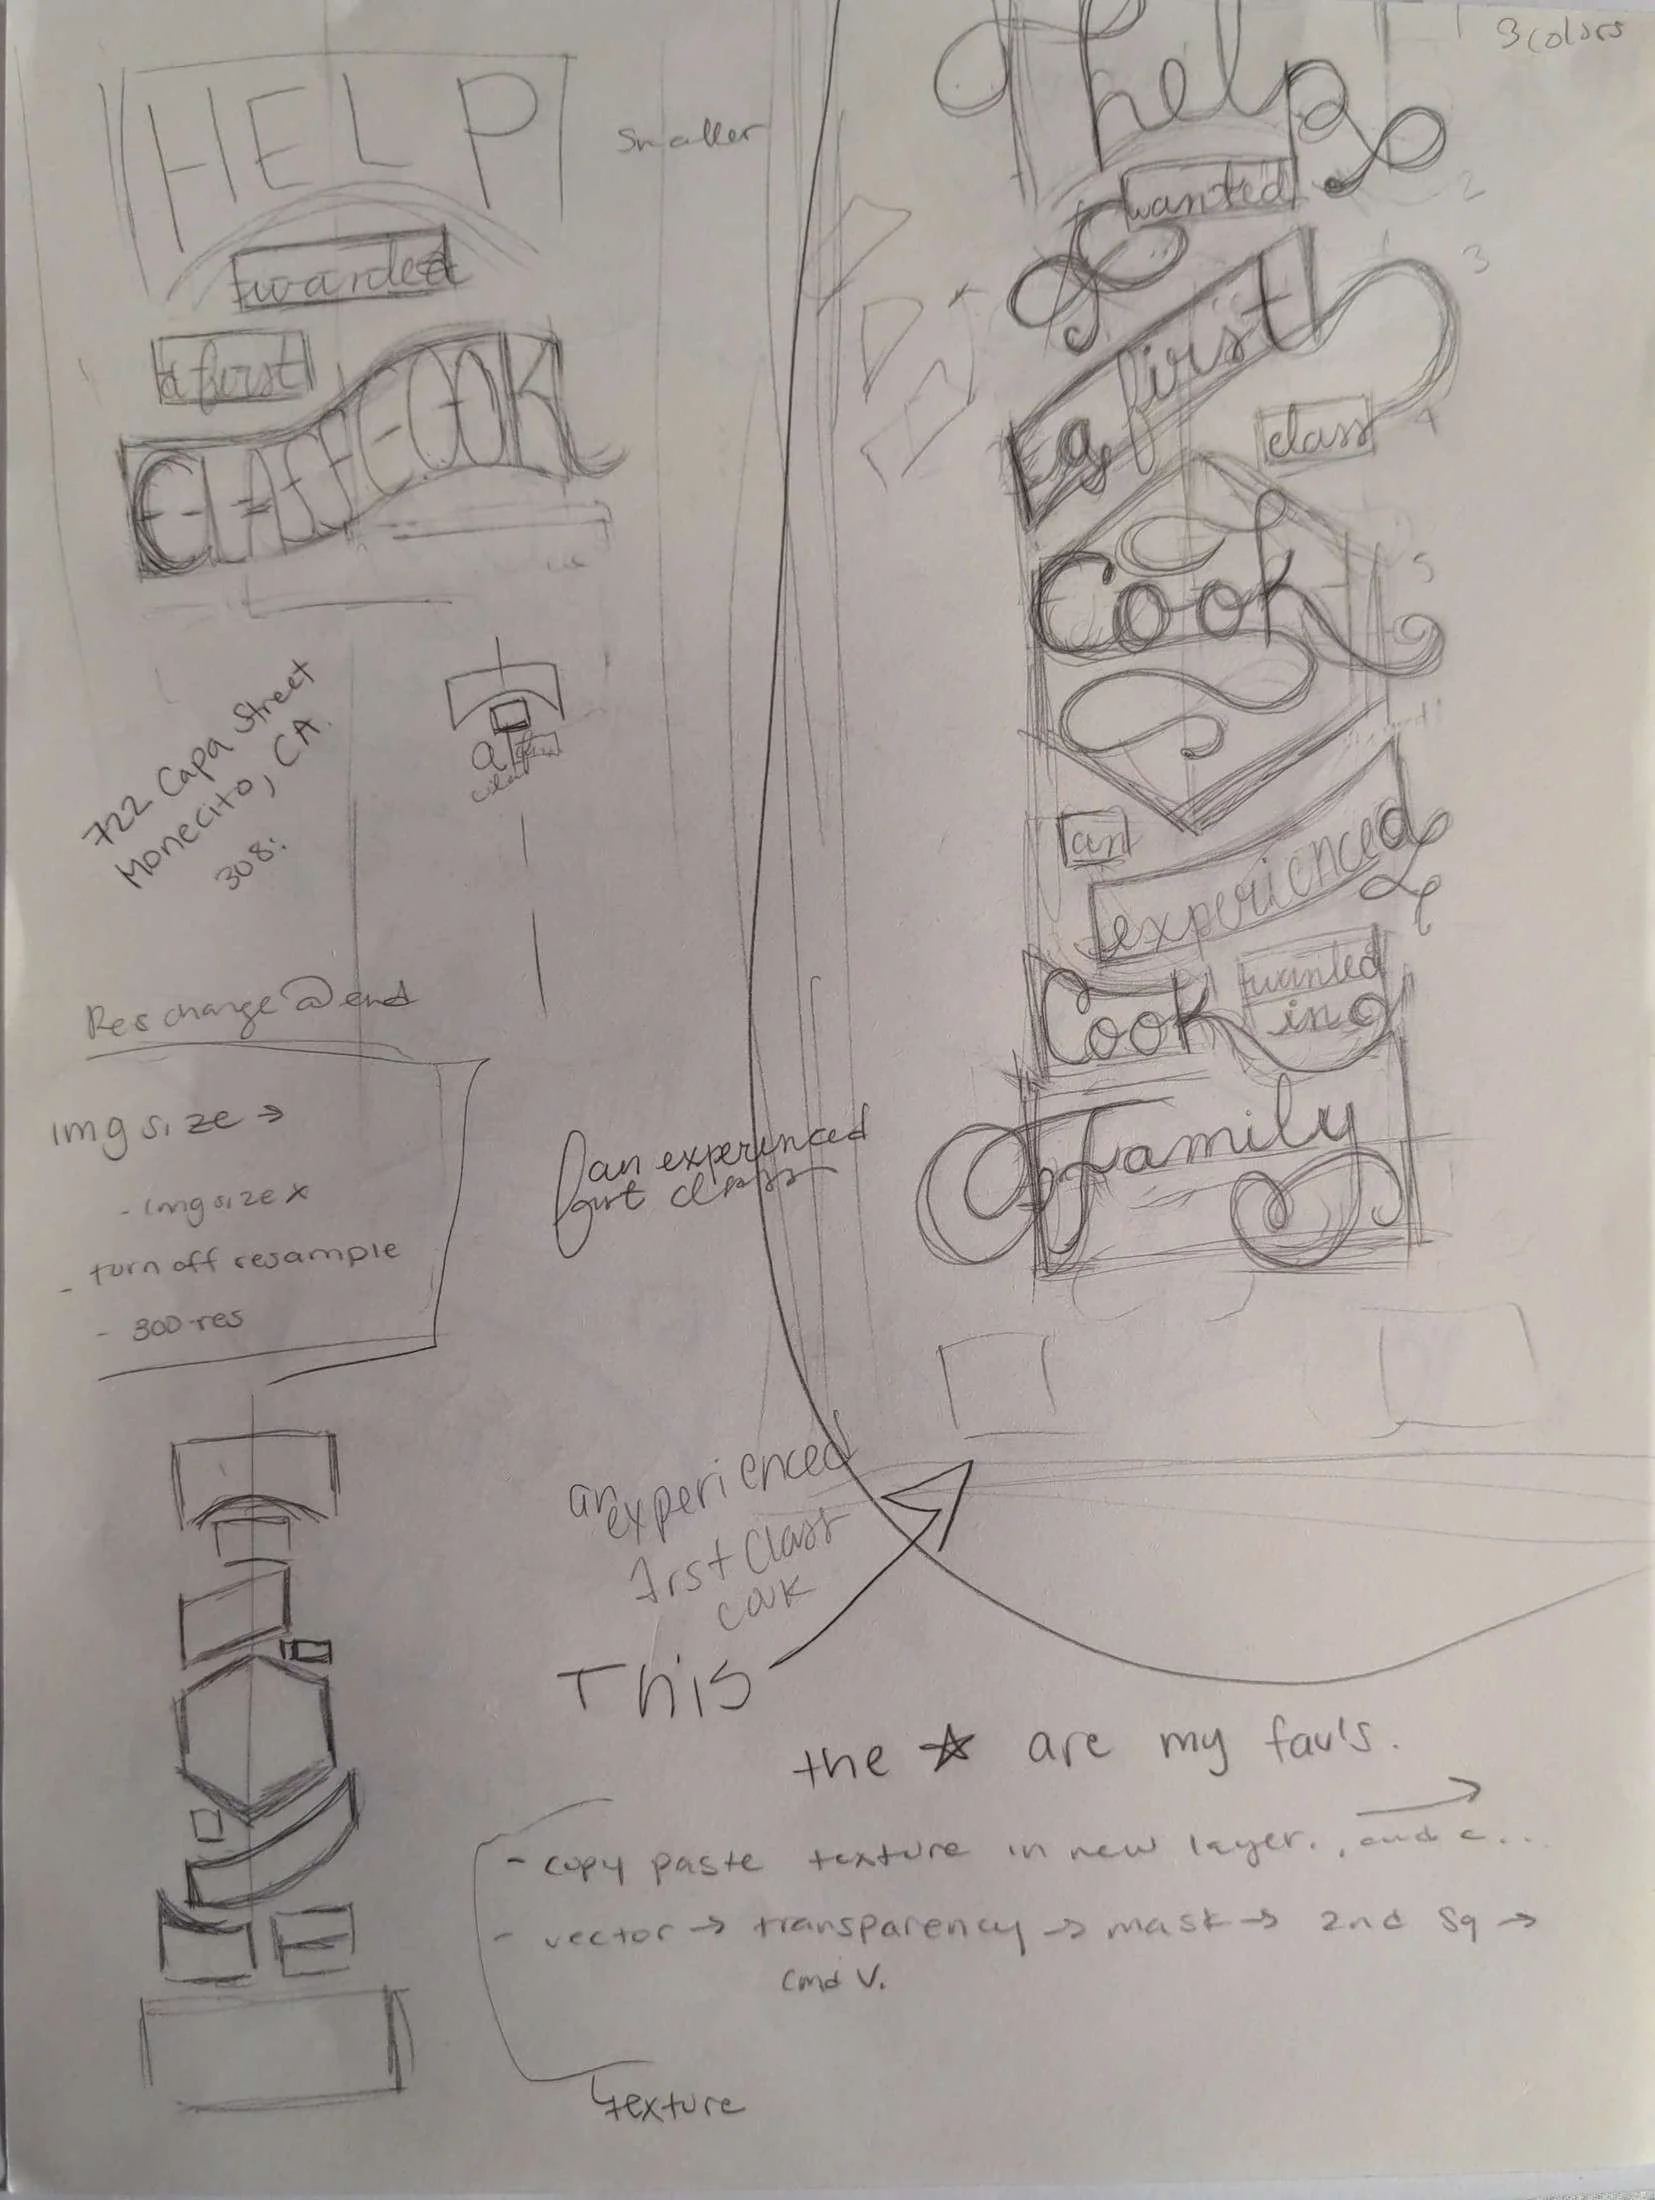 3 colors
HELP
smaller
wanted
a first
CLASS COOK
722 Capa Street
Monecito, CA.
308:
a
Res change @ end
img size →
- img size x
- turn off resample
- 300 res
help
wanted
2
a first
3
class
4
Cook
5
an
experienced
Cook
wanted
in a
Family
an experienced
first class
an
experienced
first Class
cook
This
the ☆ are my fav's.
- copy paste texture in new layer., and c...
- vector → transparency → mask → 2nd sq →
cmd V.
texture